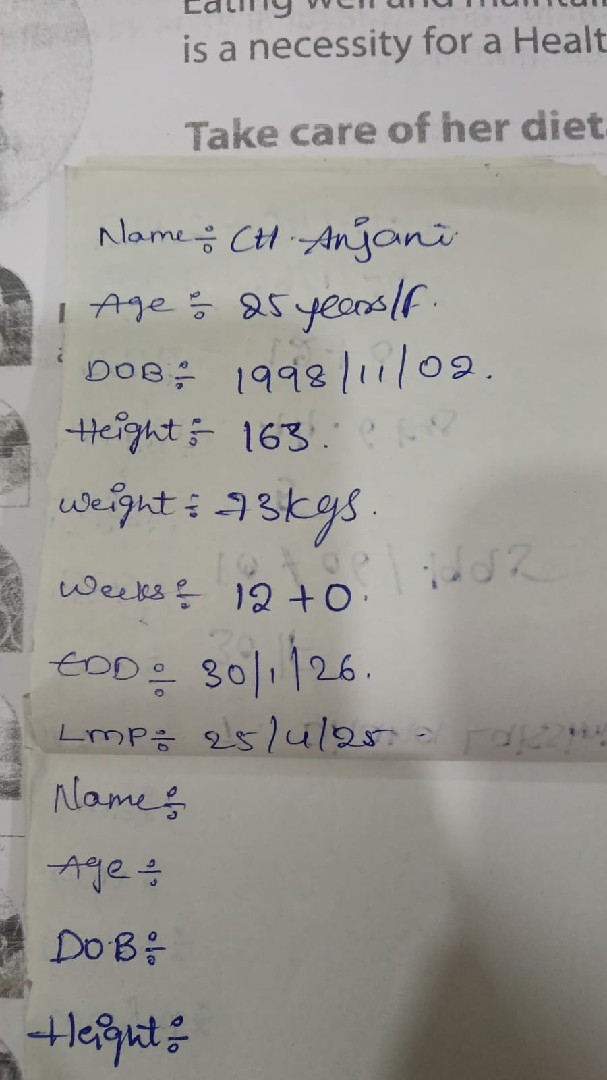 is a necessity for a Healt
Take care of her diet.
Name÷ CH. Anjani
Age ÷ 25 years/F.
DOB÷ 1998/11/02.
Height÷ 163.
Weight÷ 73kgs.
Weeks÷ 12+0.
EDD÷ 30/1/26.
LMP÷ 25/4/25
Name÷
Age÷
DOB÷
Height÷